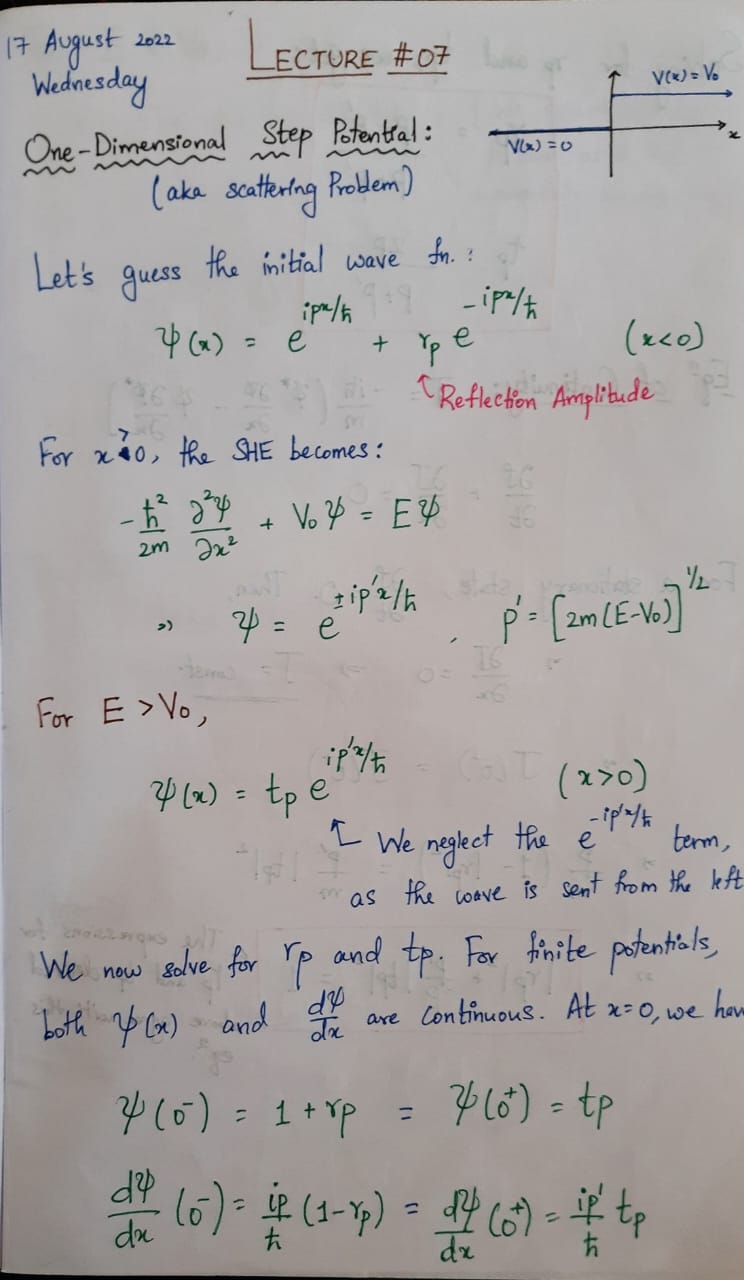 17 August 2022
Wednesday
LECTURE #07
V(x) = V₀
x
V(x) = 0
One-Dimensional Step Potential:
(aka scattering Problem)
Let's guess the initial wave fn. :
ψ(x) = e^{ipx/ħ} + r_p e^{-ipx/ħ} (x<0)
↑ Reflection Amplitude
For x > 0, the SHE becomes:
-ħ²/2m ∂²ψ/∂x² + V₀ψ = Eψ
⇒ ψ = e^{±ip'x/ħ} , p' = [2m(E-V₀)]^{1/2}
For E > V₀,
ψ(x) = t_p e^{ip'x/ħ} (x>0)
↑ We neglect the e^{-ip'x/ħ} term,
as the wave is sent from the left
We now solve for r_p and t_p. For finite potentials,
both ψ(x) and dψ/dx are continuous. At x=0, we hav
ψ(0⁻) = 1 + r_p = ψ(0⁺) = t_p
dψ/dx (0⁻) = ip/ħ (1-r_p) = dψ/dx (0⁺) = ip'/ħ t_p